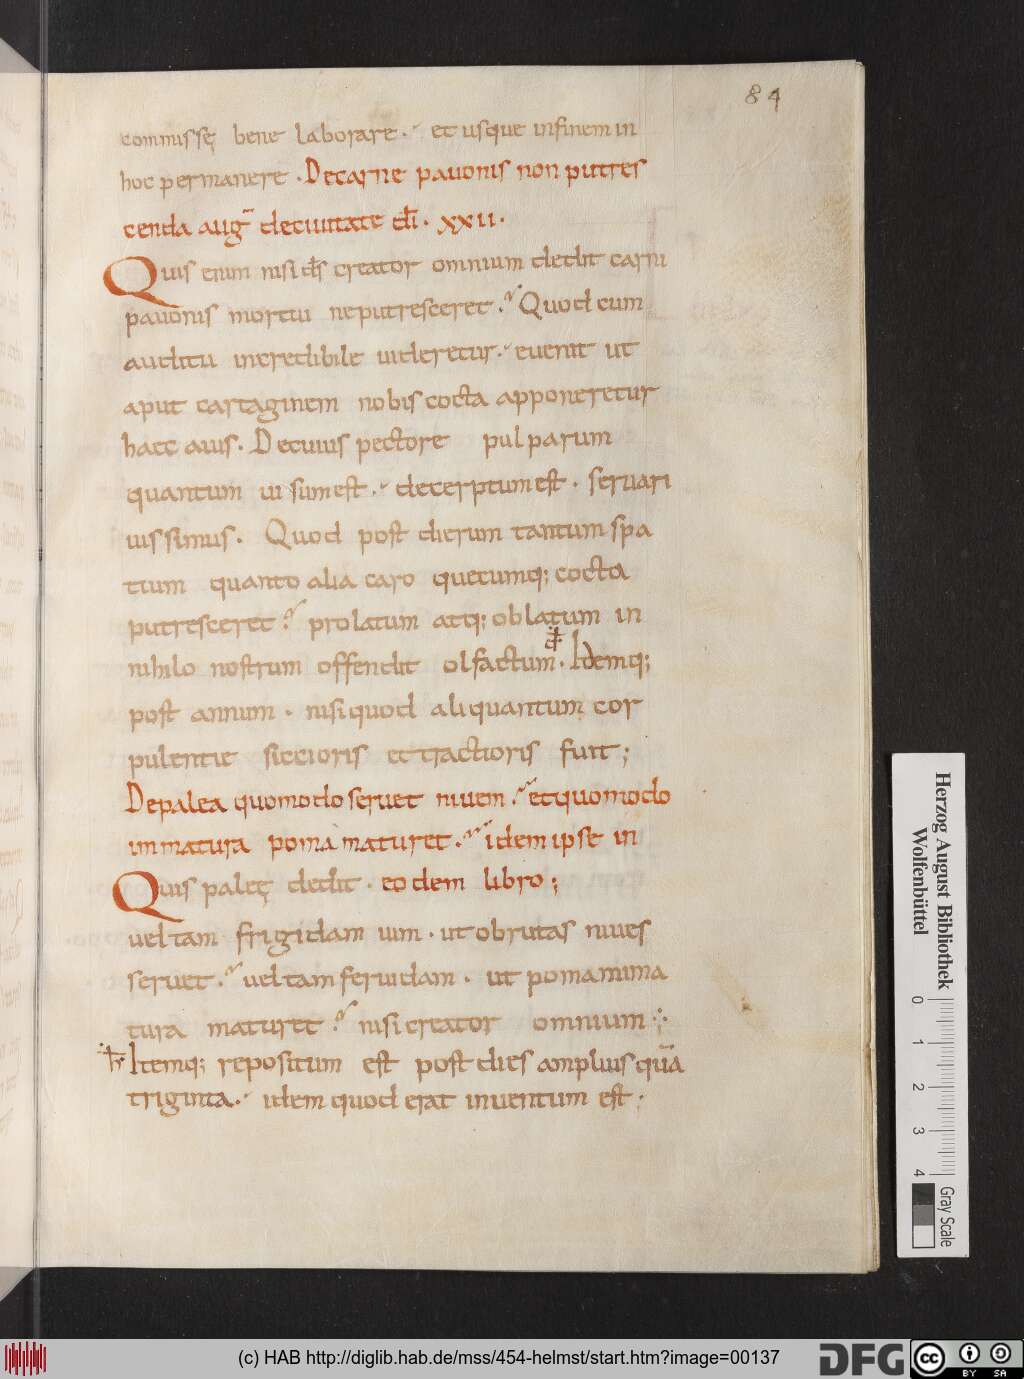 84
commissę bene laborare. et usque infinem in
hoc permanere. Decarne pauonis non putres
cenda aug̃ deciuitate dī. xxii.
Quis enim nisi d̄s creator omnium dedit carni
pauonis mortui neputresceret. Quod cum
auditu incredibile uideretur. euenit ut
aput cartaginem nobis cocta apponeretur
haec auis. Decuius pectore pulparum
quantum uisum est. decerptum est. seruari
iussimus. Quod post dierum tantum spa
tium quanto alia caro quecumq; cocta
putresceret. prolatum atq; oblatum in
nihilo nostrum offendit olfactum. Idemq;
post annum. nisi quod aliquantum cor
pulentie siccioris et tractioris fuit;
Depalea quomodo seruet niuem. etquomodo
inmatura poma maturet. idem ipse in
Quis paleę dedit. eodem libro;
uel tam frigidam uim. ut obrutas niues
seruet. uel tam feruidam. ut poma inma
tura maturet. nisi creator omnium
h̄ Itemq; repositum est post dies amplius quā
triginta. idem quod erat inuentum est.
Herzog August Bibliothek
Wolfenbüttel
0 1 2 3 4
Gray Scale
(c) HAB http://diglib.hab.de/mss/454-helmst/start.htm?image=00137
DFG
cc BY SA